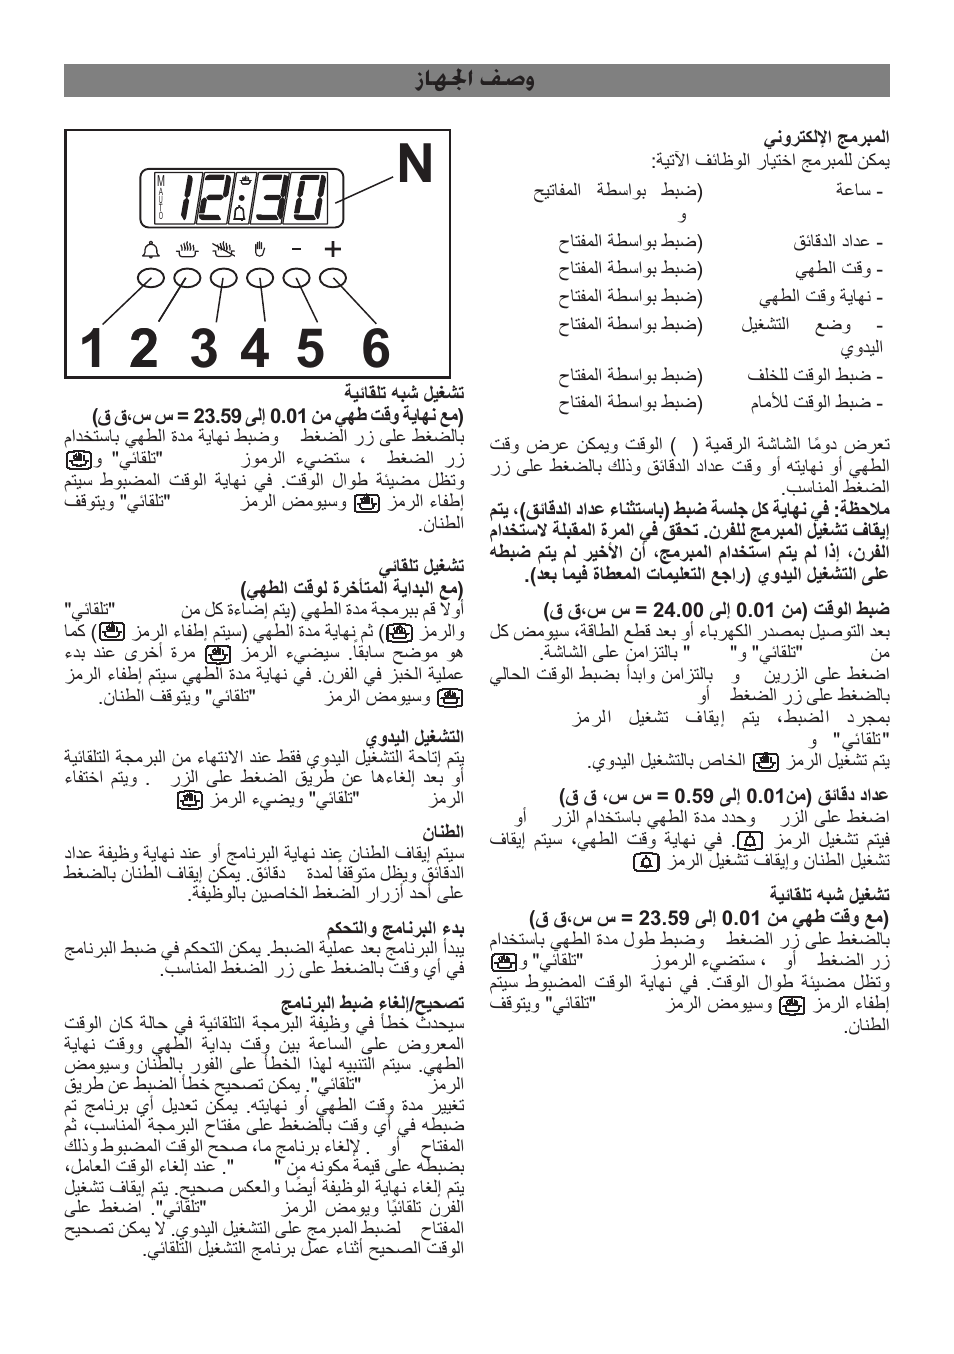 وصف الجهاز
المبرمج الإلكتروني
يمكن للمبرمج اختيار الوظائف الآتية:
- ساعة (ضبط بواسطة المفاتيح
و
- عداد الدقائق (ضبط بواسطة المفتاح
- وقت الطهي (ضبط بواسطة المفتاح
- نهاية وقت الطهي (ضبط بواسطة المفتاح
- وضع التشغيل (ضبط بواسطة المفتاح
اليدوي
- ضبط الوقت للخلف (ضبط بواسطة المفتاح
- ضبط الوقت للأمام (ضبط بواسطة المفتاح
تعرض دومًا الشاشة الرقمية ( ) الوقت ويمكن عرض وقت
الطهي أو نهايته أو وقت عداد الدقائق وذلك بالضغط على زر
الضغط المناسب.
ملاحظة: في نهاية كل جلسة ضبط (باستثناء عداد الدقائق)، يتم
إيقاف تشغيل المبرمج للفرن. تحقق في المرة المقبلة لاستخدام
الفرن، إذا لم يتم استخدام المبرمج، أن الأخير لم يتم ضبطه
على التشغيل اليدوي (راجع التعليمات المعطاة فيما بعد).
ضبط الوقت (من 0.01 إلى 24.00 = س س،ق ق)
بعد التوصيل بمصدر الكهرباء أو بعد قطع الطاقة، سيومض كل
من "تلقائي" و" " بالتزامن على الشاشة.
اضغط على الزرين و بالتزامن وابدأ بضبط الوقت الحالي
بالضغط على زر الضغط أو
بمجرد الضبط، يتم إيقاف تشغيل الرمز
"تلقائي" و
يتم تشغيل الرمز الخاص بالتشغيل اليدوي.
عداد دقائق (من0.01 إلى 0.59 = س س، ق ق)
اضغط على الزر وحدد مدة الطهي باستخدام الزر أو
فيتم تشغيل الرمز . في نهاية وقت الطهي، سيتم إيقاف
تشغيل الطنان وإيقاف تشغيل الرمز
تشغيل شبه تلقائية
(مع وقت طهي من 0.01 إلى 23.59 = س س،ق ق)
بالضغط على زر الضغط وضبط طول مدة الطهي باستخدام
زر الضغط أو ، ستضيء الرموز "تلقائي" و
وتظل مضيئة طوال الوقت. في نهاية الوقت المضبوط سيتم
إطفاء الرمز وسيومض الرمز "تلقائي" ويتوقف
الطنان.
N
M
AUTO
12:30
- +
1 2 3 4 5 6
تشغيل شبه تلقائية
(مع نهاية وقت طهي من 0.01 إلى 23.59 = س س،ق ق)
بالضغط على زر الضغط وضبط نهاية مدة الطهي باستخدام
زر الضغط ، ستضيء الرموز "تلقائي" و
وتظل مضيئة طوال الوقت. في نهاية الوقت المضبوط سيتم
إطفاء الرمز وسيومض الرمز "تلقائي" ويتوقف
الطنان.
تشغيل تلقائي
(مع البداية المتأخرة لوقت الطهي)
أولا قم ببرمجة مدة الطهي (يتم إضاءة كل من "تلقائي"
والرمز ) ثم نهاية مدة الطهي (سيتم إطفاء الرمز ) كما
هو موضح سابقاً. سيضيء الرمز مرة أخرى عند بدء
عملية الخبز في الفرن. في نهاية مدة الطهي سيتم إطفاء الرمز
وسيومض الرمز "تلقائي" ويتوقف الطنان.
التشغيل اليدوي
يتم إتاحة التشغيل اليدوي فقط عند الانتهاء من البرمجة التلقائية
أو بعد إلغاءها عن طريق الضغط على الزر . ويتم اختفاء
الرمز "تلقائي" ويضيء الرمز
الطنان
سيتم إيقاف الطنان عند نهاية البرنامج أو عند نهاية وظيفة عداد
الدقائق ويظل متوقفاً لمدة دقائق. يمكن إيقاف الطنان بالضغط
على أحد أزرار الضغط الخاصين بالوظيفة.
بدء البرنامج والتحكم
يبدأ البرنامج بعد عملية الضبط. يمكن التحكم في ضبط البرنامج
في أي وقت بالضغط على زر الضغط المناسب.
تصحيح/إلغاء ضبط البرنامج
سيحدث خطأ في وظيفة البرمجة التلقائية في حالة كان الوقت
المعروض على الساعة بين وقت بداية الطهي ووقت نهاية
الطهي. سيتم التنبيه لهذا الخطأ على الفور بالطنان وسيومض
الرمز "تلقائي". يمكن تصحيح خطأ الضبط عن طريق
تغيير مدة وقت الطهي أو نهايته. يمكن تعديل أي برنامج تم
ضبطه في أي وقت بالضغط على مفتاح البرمجة المناسب، ثم
المفتاح أو . لإلغاء برنامج ما، صحح الوقت المضبوط وذلك
بضبطه على قيمة مكونه من " ". عند إلغاء الوقت العامل،
يتم إلغاء نهاية الوظيفة أيضًا والعكس صحيح. يتم إيقاف تشغيل
الفرن تلقائيًا ويومض الرمز "تلقائي". اضغط على
المفتاح لضبط المبرمج على التشغيل اليدوي. لا يمكن تصحيح
الوقت الصحيح أثناء عمل برنامج التشغيل التلقائي.